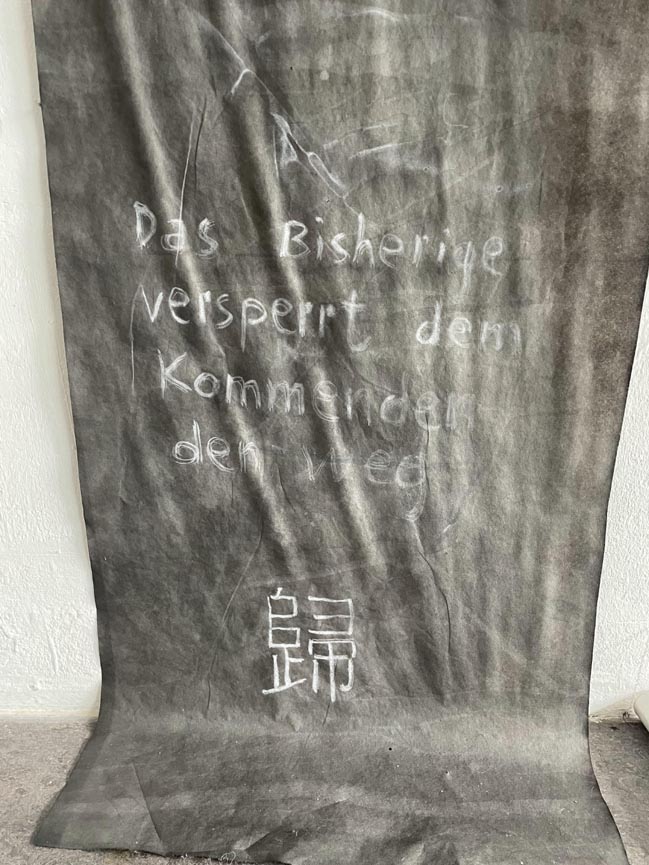 Das Bisherige
versperrt dem
Kommenden
den Weg
歸